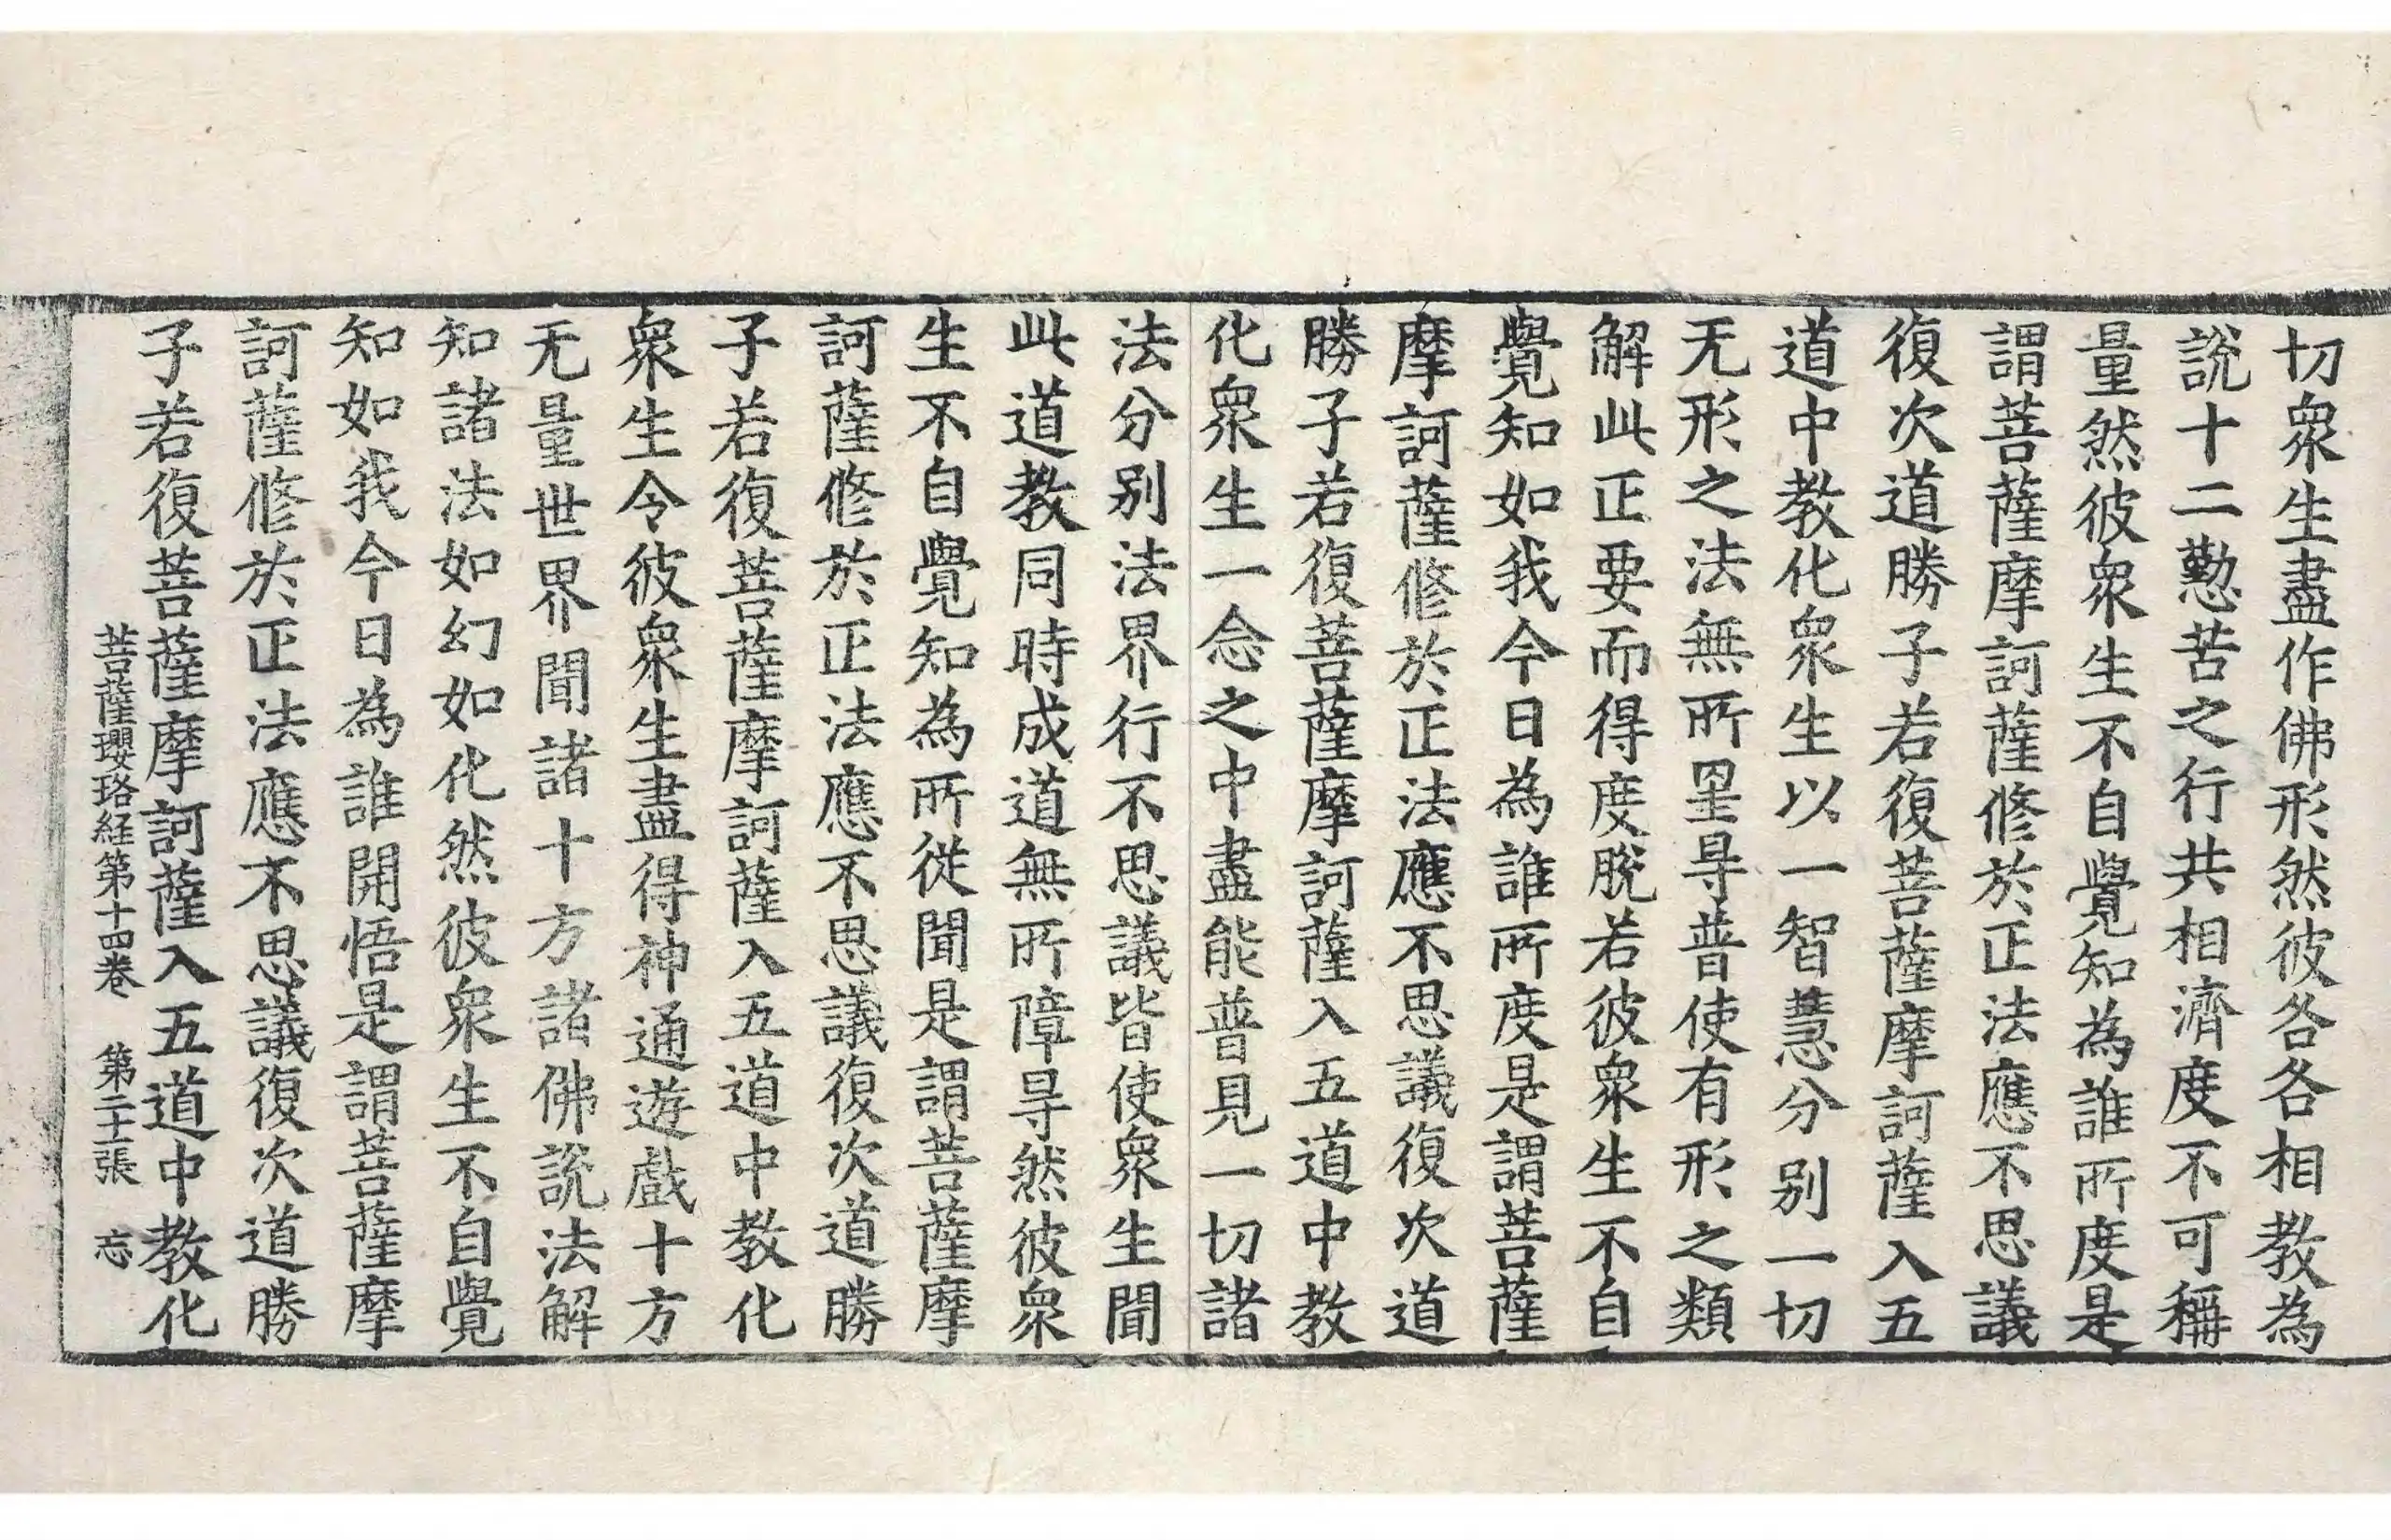 切衆生盡作佛形然彼各各相教為
說十二懃苦之行共相濟度不可稱
量然彼衆生不自覺知為誰所度是
謂菩薩摩訶薩修於正法應不思議
復次道勝子若復菩薩摩訶薩入五
道中教化衆生以一智慧分别一切
无形之法無所罣㝵普使有形之類
解此正要而得度脫若彼衆生不自
覺知如我今日為誰所度是謂菩薩
摩訶薩修於正法應不思議復次道
勝子若復菩薩摩訶薩入五道中教
化衆生一念之中盡能普見一切諸
法分别法界行不思議皆使衆生聞
此道教同時成道無所障㝵然彼衆
生不自覺知為所從聞是謂菩薩摩
訶薩修於正法應不思議復次道勝
子若復菩薩摩訶薩入五道中教化
衆生令彼衆生盡得神通遊戲十方
无量世界聞諸十方諸佛說法解
知諸法如幻如化然彼衆生不自覺
知如我今日為誰開悟是謂菩薩摩
訶薩修於正法應不思議復次道勝
子若復菩薩摩訶薩入五道中教化
菩薩瓔珞経第十四卷 第二十張 忘